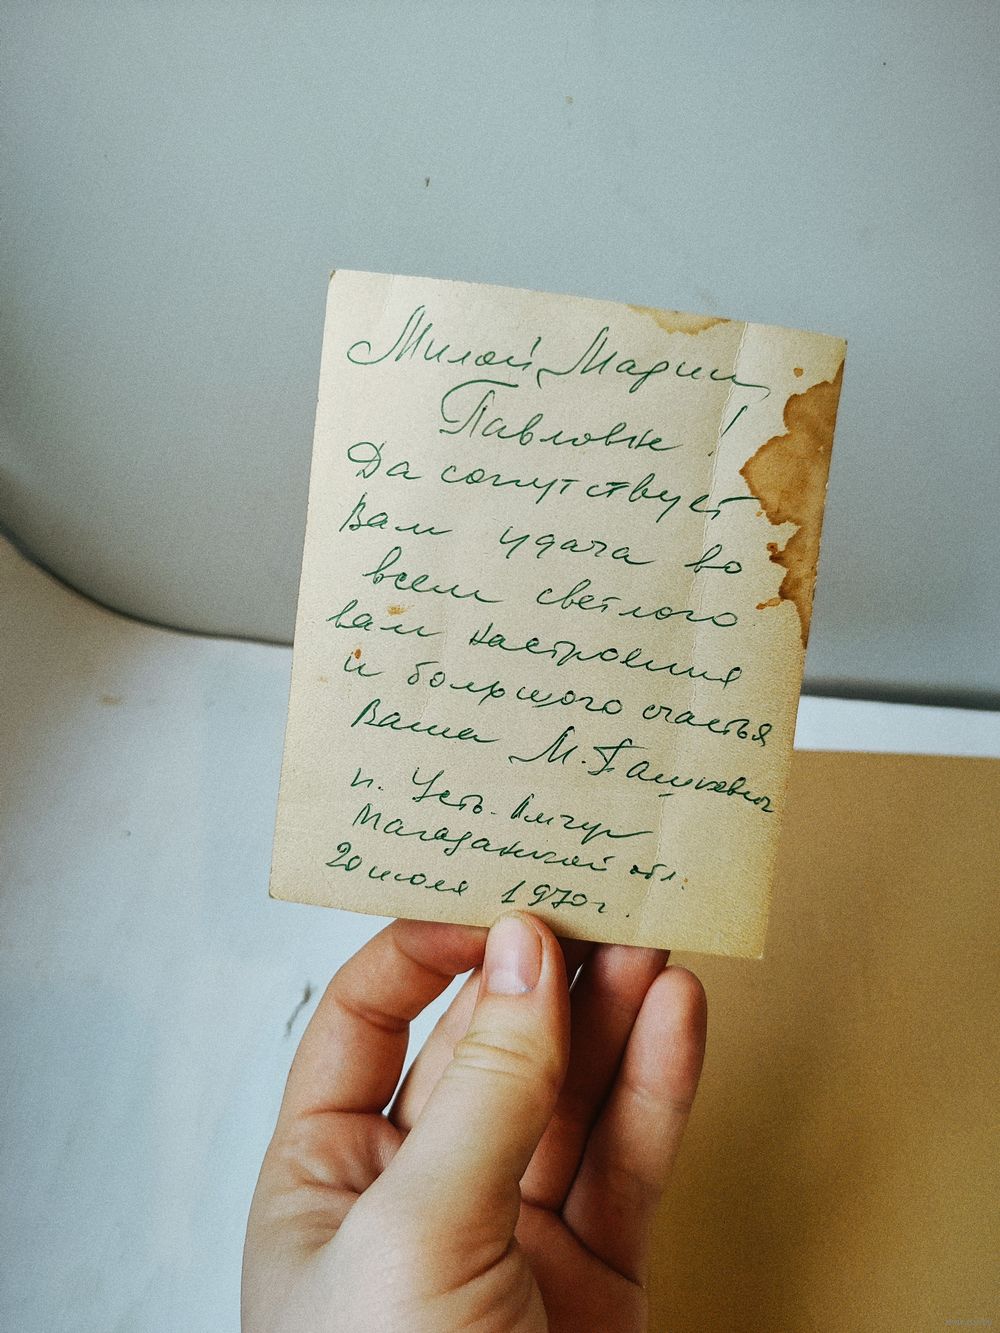 Милой Марии
Павловне!
Да сопутствует
Вам удача во
всем светлого
вам настроения
и большого счастья
Ваша М.
п. Усть-Омчуг
Магаданской обл.
20 июля 1970 г.